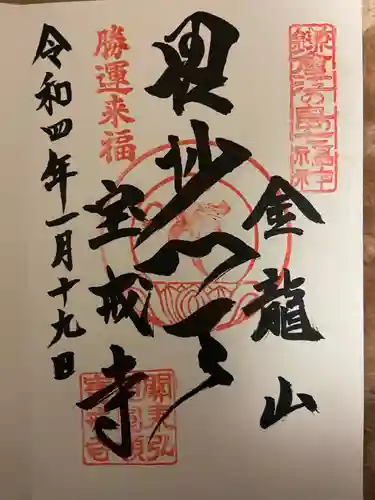 鎌倉江の島七福神
金龍山
毘沙門天
勝運来福
宝戒寺
令和四年一月十九日